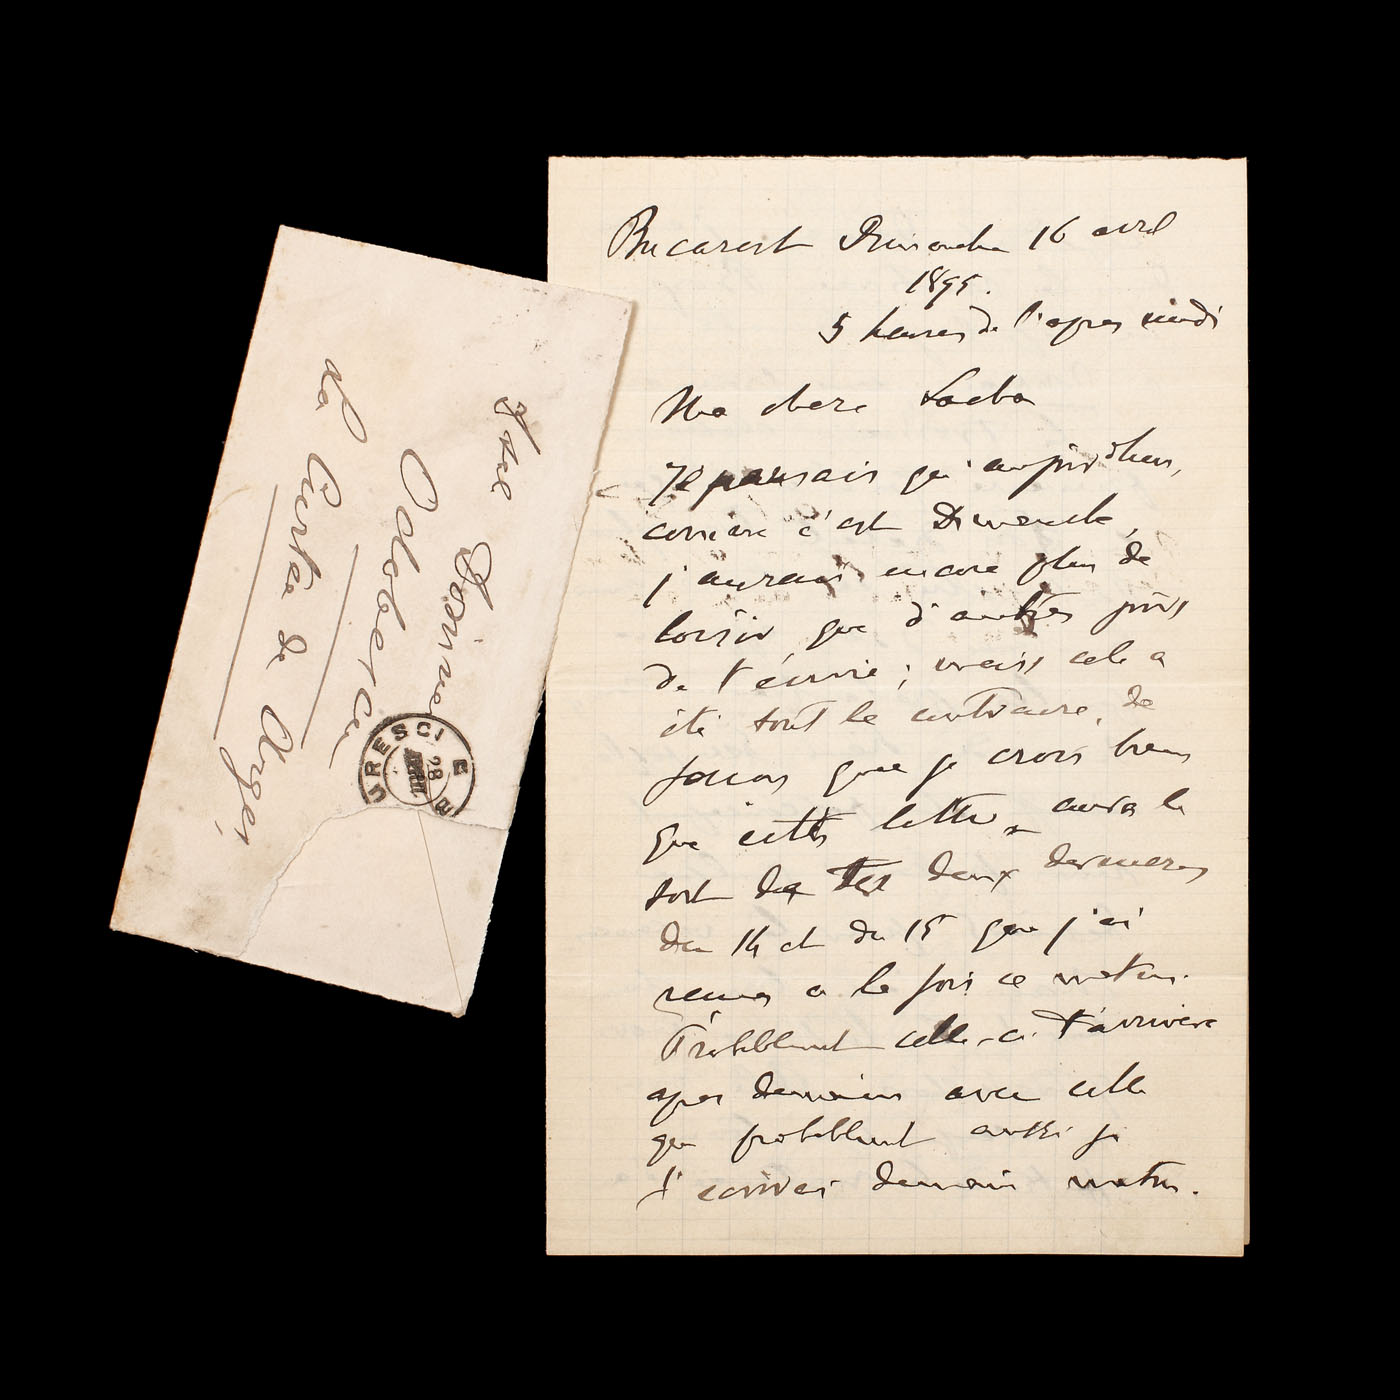 Bucarest Dimanche 16 avril
1895.
5 heures de l'apres midi
Ma chere Sacha
Je pensais qu'aujourdhui,
comme c'est Dimanche,
j'aurais encore plus de
loisir que d'autres jours
de t'écrire ; mais cela a
été tout le contraire, de
facon que je crois bien
que cette lettre aura le
sort de tes deux dernieres
du 14 et du 15 que j'ai
recues a la fois ce matin.
Probablement celle-ci t'arrivera
apres demain avec celle
que probablement aussi je
t'ecrirai demain matin.
Doamnei
Odobescu
la Curtea de Arges,
BUCURESCI
28